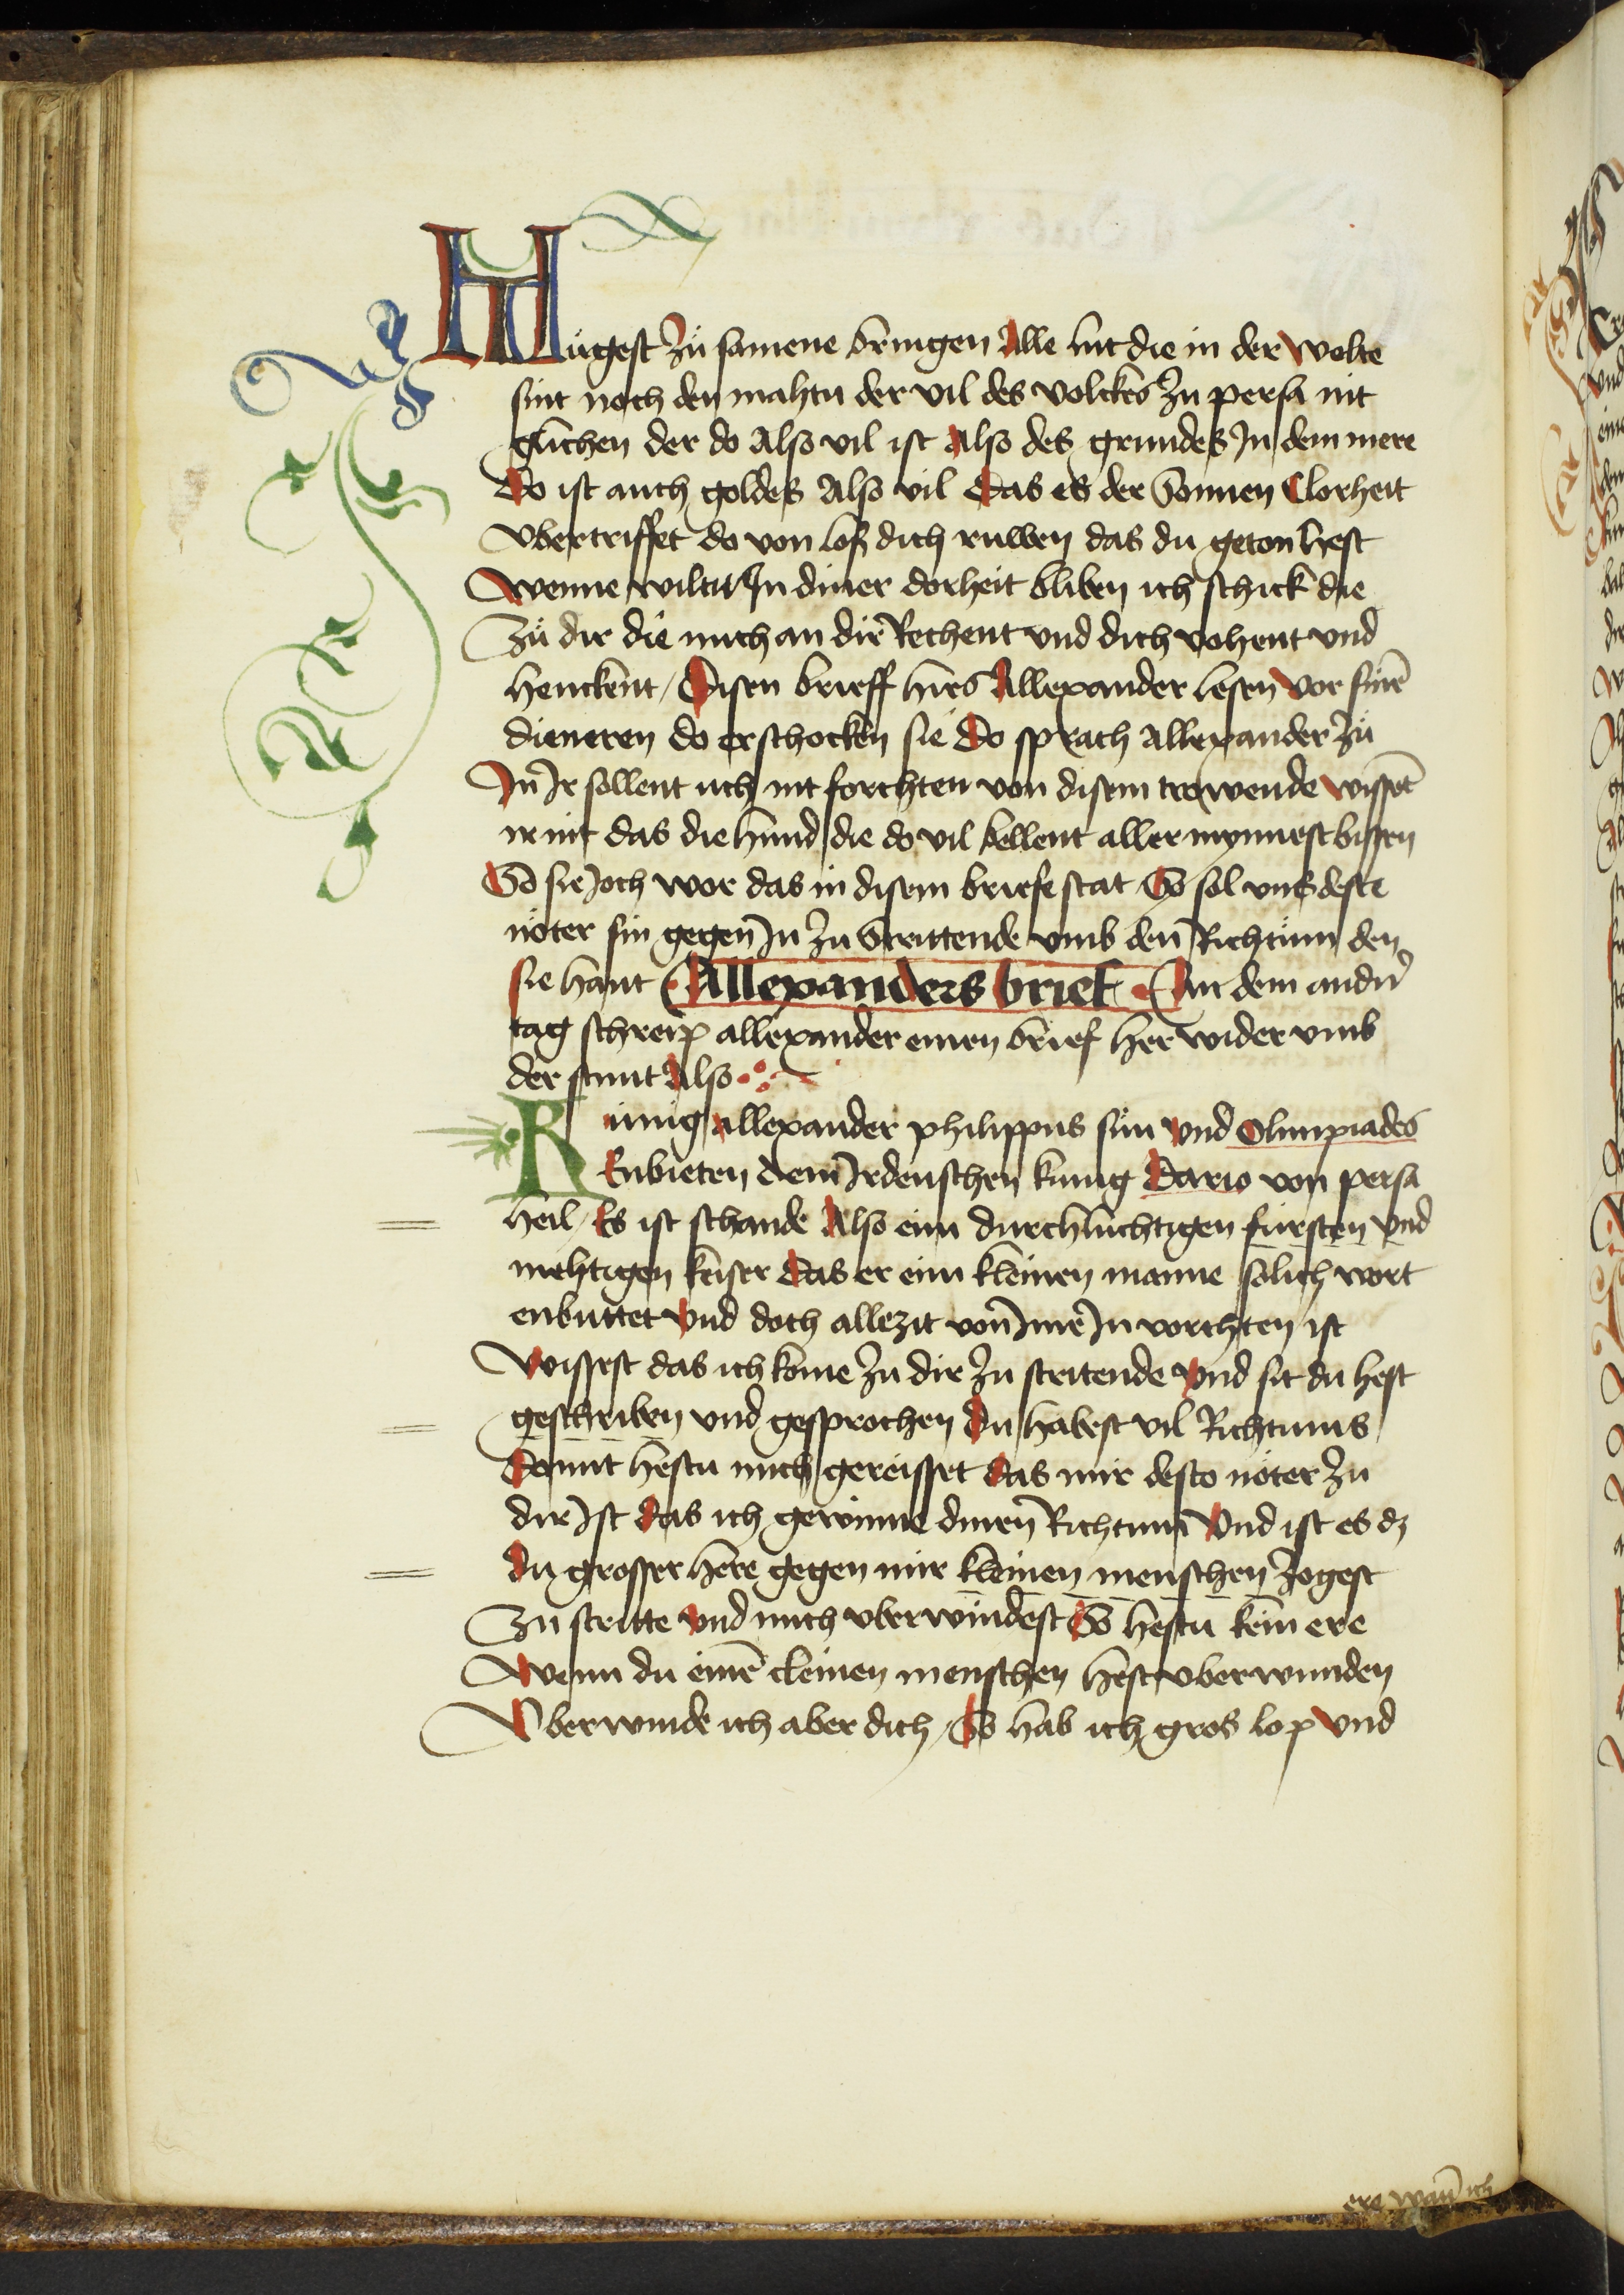 Mügest zů samene bringen alle lüt die in der welte
sint noch den mahtu der vil des volckes zu persa nit
glichen der do also vil ist also des grundes Jn dem mere
Do ist auch goldes also vil das es der Sonnen Clorheit
vbertriffet do von loß dich ruwen das du geton hest
Wenne wiltu Jn diner dorheit bliben ich schick die
Zů dir die mich an dir Rechent vnd dich vohent vnd
henckent / Disen brieff hies Allexander lesen vor sinē
dieneren do erschocken sie do sprach allexander zů
Jn Jr sollent uch nit forchten von disem trowende wissēt
ir nit das die hund die do vil bellent aller mynnest bissen
So sie Joch wor das in disem briefe stat So sol vns deste
nöter sin gegen Jn zu Strittende vmb den Richtum den
sie hant Allexanders brief An dem andrn
tag schreip allexander einen brief her wider vmb
der stunt Also
Künig allexander philippus sün vnd Olimpiades
Enbieten dem Jrdenschen kunig Dario von persa
heil / Es ist schande Also eim durchlüchtigen fürsten vnd
mehtigen keiser das er eim kleinen manne sölich wort
enbuttet vnd doch allezit von Jme Jn vorchten ist
Wissest das ich kome zu dir zu stritende vnd sit du hest
geschriben vnd gesprochen du habest vil Richtums
Domit hestu mich gereisset das mir desto nöter zu
dir Jst das ich gewinne dinen Richtum Vnd ist es dz
du grosser here gegen mir kleinen menschen zogest
Zu stritte vnd mich vberwindest So hestu kein ere
Wenn du einē cleinen menschen hest vberwunden
Vberwinde ich aber dich / So hab ich gros lop vnd
ere wan ich